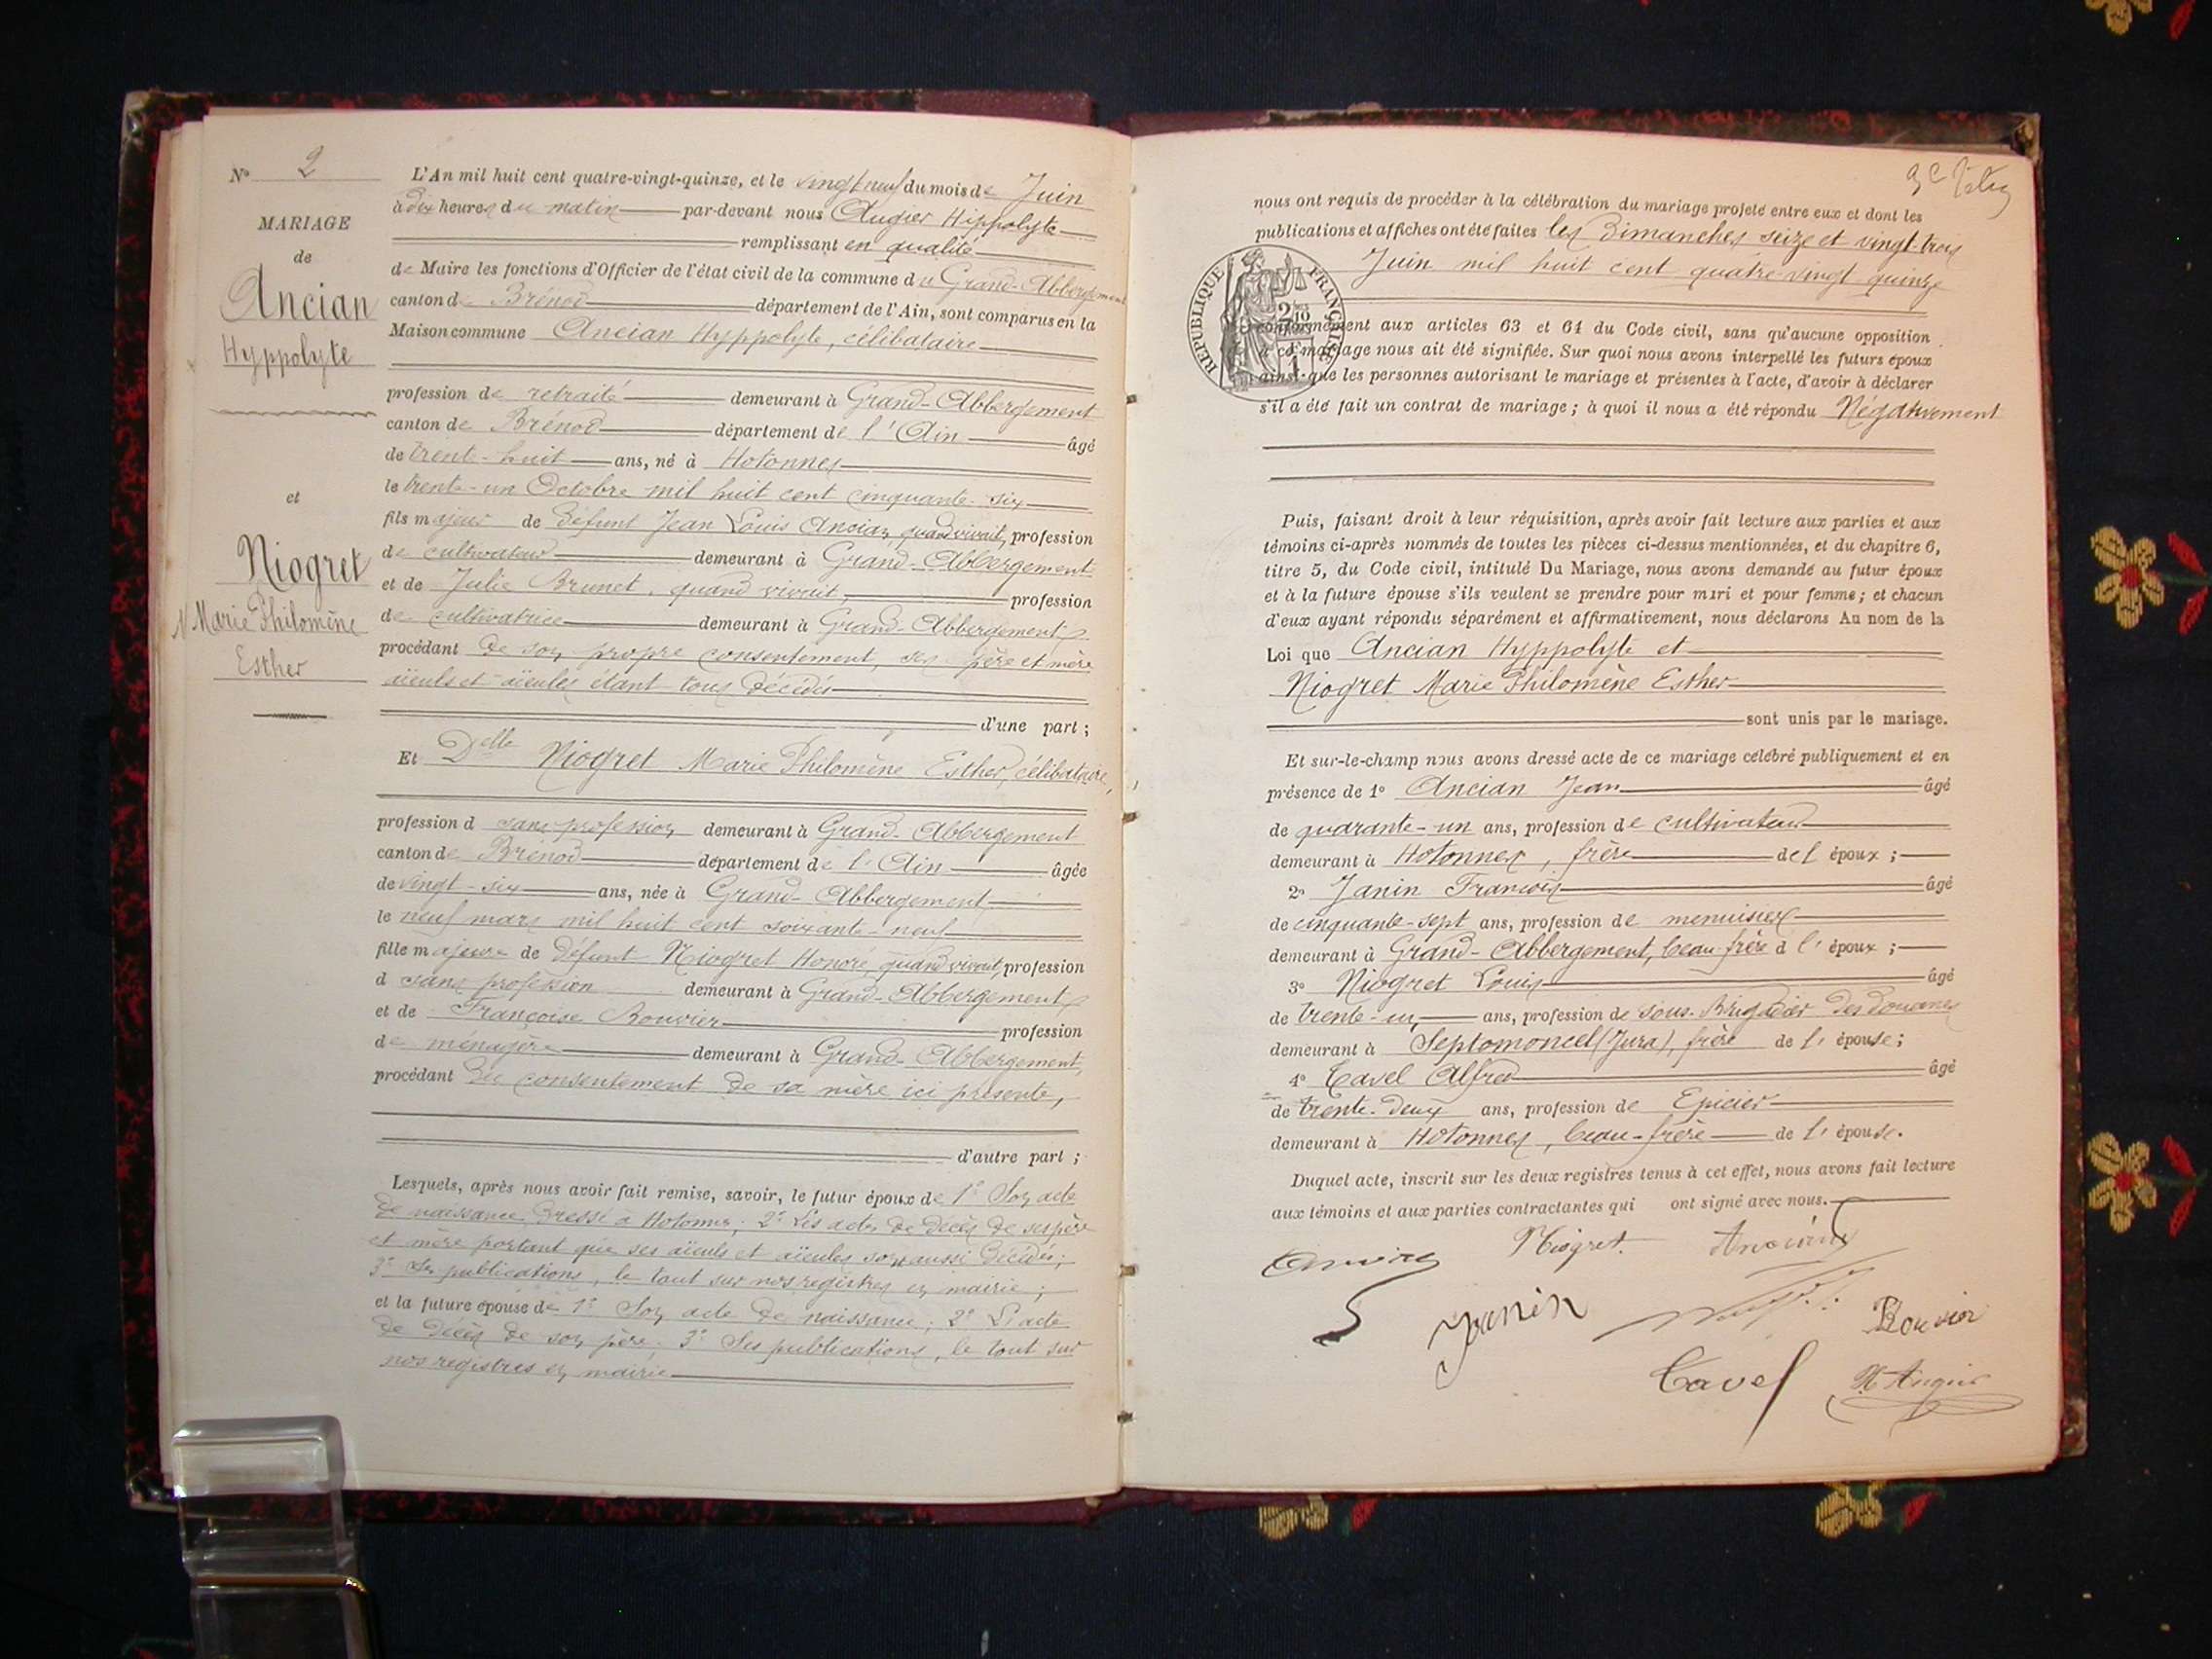 N° 2
MARIAGE
de
Ancian
Hyppolyte
et
Niogret
Marie Philomène
Esther
L'An mil huit cent quatre-vingt-quinze, et le vingt neuf du mois de Juin
à dix heures du matin par-devant nous Augier Hippolyte
remplissant en qualité
de Maire les fonctions d'Officier de l'état civil de la commune du Grand-Abbergement
canton de Brénod département de l'Ain, sont comparus en la
Maison commune Ancian Hyppolyte, célibataire
profession de retraité demeurant à Grand-Abbergement
canton de Brénod département de l'Ain âgé
de trent-huit ans, né à Hotonnes
le trente-un Octobre mil huit cent cinquante-six
fils majeur de défunt Jean Louis Ancian, quand vivait, profession
de cultivateur demeurant à Grand-Abbergement
et de Julie Brunet, quand vivait, profession
de cultivatrice demeurant à Grand-Abbergement
procédant de son propre consentement, ses père et mère
aïeuls et aïeules étant tous décédés
d'une part ;
Et Delle Niogret Marie Philomène Esther, célibataire,
profession d sans profession demeurant à Grand-Abbergement
canton de Brénod département de l'Ain âgée
de vingt-six ans, née à Grand-Abbergement
le neuf mars mil huit cent soixante-neuf
fille majeure de défunt Niogret Honoré, quand vivait, profession
d sans profession demeurant à Grand-Abbergement
et de Françoise Bouvier profession
de ménagère demeurant à Grand-Abbergement,
procédant du consentement de sa mère ici présente,
d'autre part ;
Lesquels, après nous avoir fait remise, savoir, le futur époux de 1° Son acte
de naissance dressé à Hotonnes ; 2° Les actes de décès de ses père
et mère portant que ses aïeuls et aïeules sont aussi décédés ;
3° Les publications, le tout sur nos registres en mairie ;
et la future épouse de 1° Son acte de naissance ; 2° L'acte
de décès de son père ; 3° Les publications, le tout sur
nos registres en mairie
nous ont requis de procéder à la célébration du mariage projeté entre eux et dont les
publications et affiches ont été faites les Dimanches seize et vingt-trois
Juin mil huit cent quatre-vingt quinze
REPUBLIQUE FRANÇAISE
conformément aux articles 63 et 64 du Code civil, sans qu'aucune opposition
à ce mariage nous ait été signifiée. Sur quoi nous avons interpellé les futurs époux
ainsi que les personnes autorisant le mariage et présentes à l'acte, d'avoir à déclarer
s'il a été fait un contrat de mariage ; à quoi il nous a été répondu Négativement
Puis, faisant droit à leur réquisition, après avoir fait lecture aux parties et aux
témoins ci-après nommés de toutes les pièces ci-dessus mentionnées, et du chapitre 6,
titre 5, du Code civil, intitulé Du Mariage, nous avons demandé au futur époux
et à la future épouse s'ils veulent se prendre pour mari et pour femme ; et chacun
d'eux ayant répondu séparément et affirmativement, nous déclarons Au nom de la
Loi que Ancian Hyppolyte et
Niogret Marie Philomène Esther
sont unis par le mariage.
Et sur-le-champ nous avons dressé acte de ce mariage célébré publiquement et en
présence de 1° Ancian Jean âgé
de quarante-un ans, profession de cultivateur
demeurant à Hotonnes, frère de l époux ;
2° Janin François âgé
de cinquante-sept ans, profession de menuisier
demeurant à Grand-Abbergement, beau-frère d l' époux ;
3° Niogret Louis âgé
de trente-un ans, profession de sous-Brigadier des douanes
demeurant à Septomoncel (Jura), frère de l' épouse ;
4° Cavel Alfred âgé
de trente-deux ans, profession de Epicier
demeurant à Hotonnes, beau-frère de l' épouse.
Duquel acte, inscrit sur les deux registres tenus à cet effet, nous avons fait lecture
aux témoins et aux parties contractantes qui ont signé avec nous.
Niogret. Ancian
Janin Bouvier
Cavel H Augier